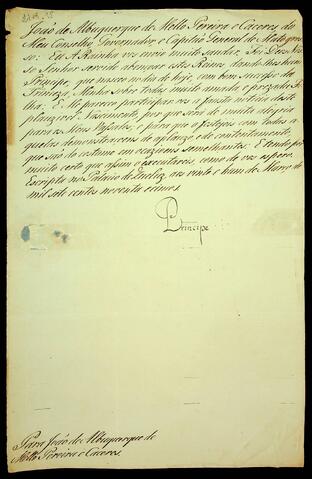 João de Albuquerque de Mello Pereira e Caceres, do
Meu Conselho, Governador e Capitão General de Matto gros-
so: Eu A Rainha vos envio muito saudar. Foi Deos Nos-
so Senhor servido abençoar estes Reinos dando-lhes hum
Principe, que nasceo no dia de hoje, com bom successo da
Princeza, Minha sobre todas muito amada e prezada Fi-
lha: E Me pareceo participar vos a fausta noticia deste
plauzivel Nascimento, por que será de muita alegria
para os Meus Vassalos, e para que o festejeis com todas a
quellas demonstraçoens de aplauzo e de contentamento,
que são do costume em occazioens semelhantes: E tendo por
muito certo que assim o executareis, como de vos espero.
Escripta no Palacio de Queluz aos vinte e hum de Março de
mil sete centos noventa e cinco.
Principe
Para João de Albuquerque de
Mello Pereira e Caceres.